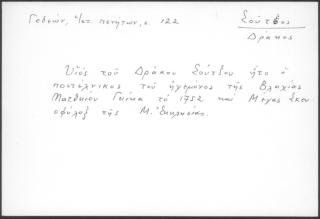 Γεδεών, Ἀπ. πενήτων, σ. 122
Σοῦτσος
Δράκος
Υἱὸς τοῦ Δράκου Σούτσου ἦτο ὁ
ποστέλνικος τοῦ ἡγεμόνος τῆς Βλαχίας
Ματθαίου Γκίκα τὸ 1752 καὶ Μέγας Σκευ
οφύλαξ τῆς Μ. Ἐκκλησίας.